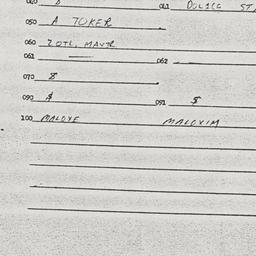 040 041 DOLICC ST
050 A TOKER
060 2 OTL. MAVTR
061 062
070 8
090 $ 091 $
100 MALOVE MALOVIM